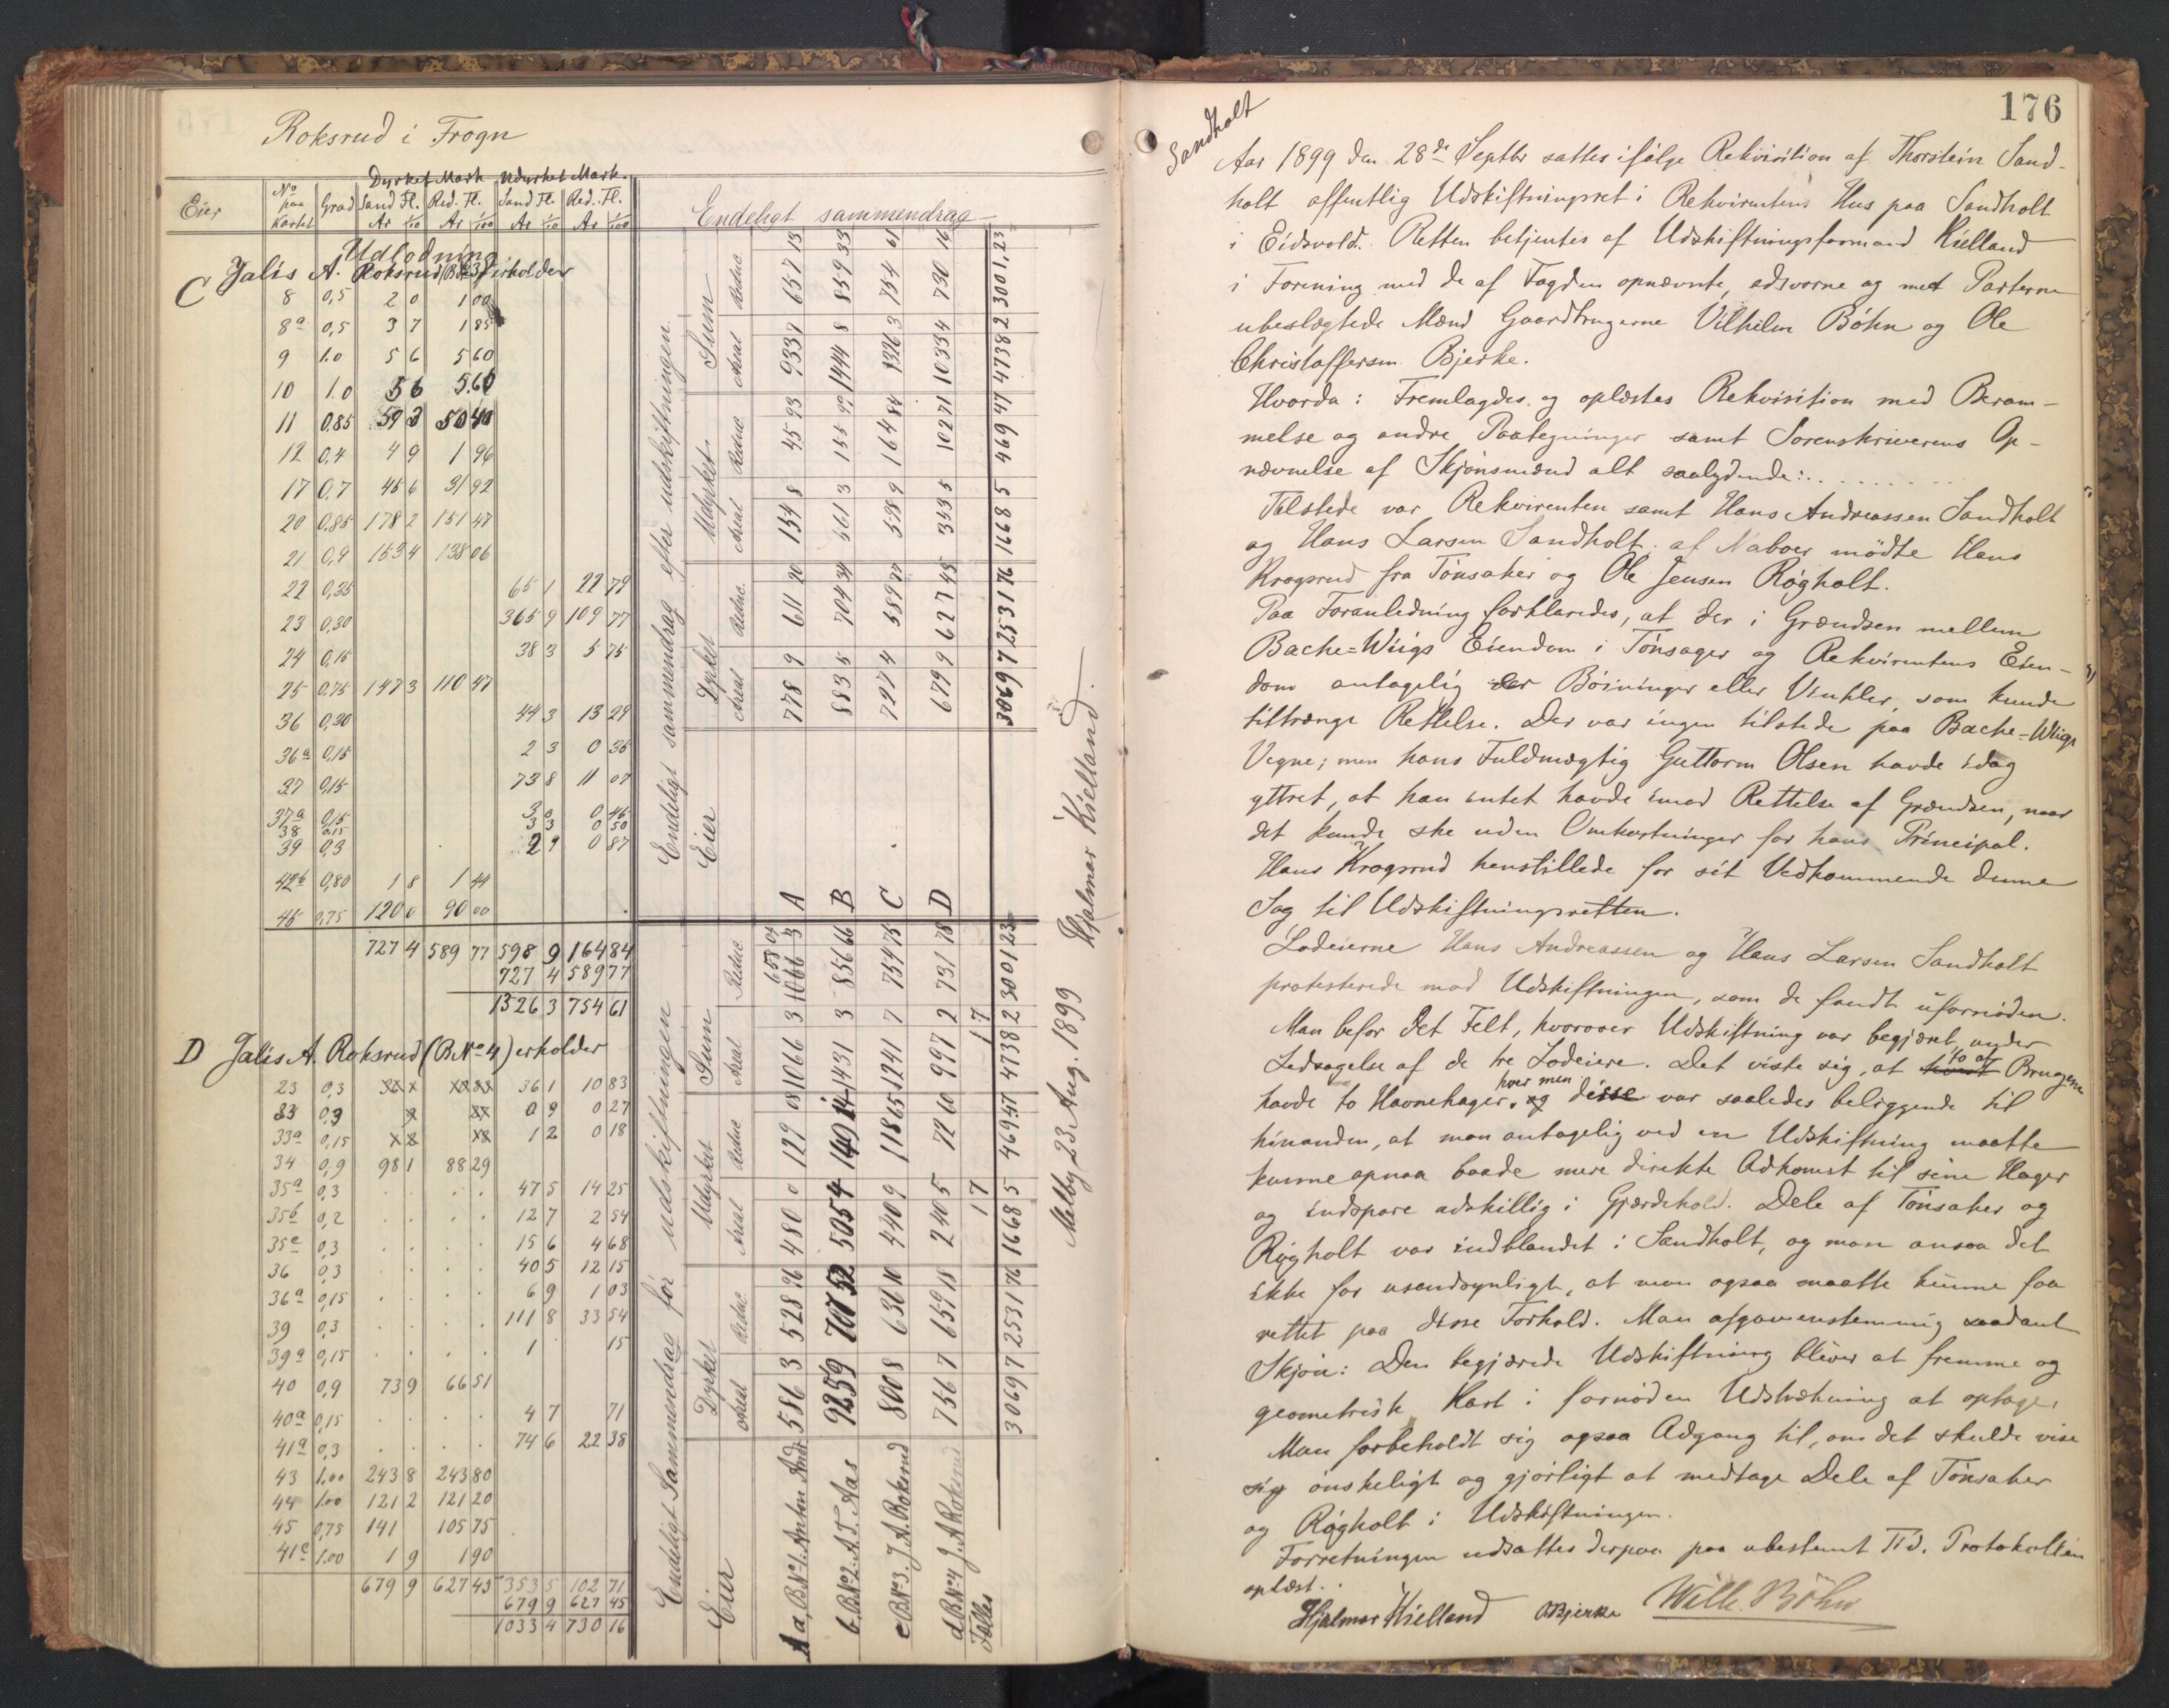 Roksrud i Frogn
Dyrket Mark. Udyrket Mark.
Eier No paa Kartet Grad Sand Fl. Red. Fl. Sand Fl. Red. Fl.
Ar 1/10 Ar 1/100 Ar 1/10 Ar 1/100
Udlodning
C Jalis A. Roksrud (B.No 3) erholder
8 0,5 2 0 1 00
8a 0,5 3 7 1 85
9 1.0 5 6 5 60
10 1.0 5 6 5.60
11 0,85 59 3 50 40
12 0,4 4 9 1 96
17 0,7 45 6 31 92
20 0,85 178 2 151 47
21 0,9 153 4 138 06
22 0,35 65 1 22 79
23 0,30 365 9 109 77
24 0,15 38 3 5 75
25 0,75 147 3 110 47
36 0,30 44 3 13 29
36a 0,15 2 3 0 35
37 0,15 73 8 11 07
37a 0,15 3 0 0 45
38 0,15 3 3 0 50
39 0,3 2 9 0 87
42b 0,80 1 8 1 44
45 0,75 120 0 90 00
727 4 589 77 598 9 164 84
727 4 589 77
1326 3 754 61
D Jalis A. Roksrud (B No 4) erholder
23 0,3 36 1 10 83
33 0,3 0 9 0 27
33a 0,15 1 2 0 18
34 0,9 98 1 88 29
35a 0,3 47 5 14 25
35b 0,2 12 7 2 54
35c 0,3 15 6 4 68
36 0,3 40 5 12 15
36a 0,15 6 9 1 03
39 0,3 111 8 33 54
39a 0,15 1 15
40 0,9 73 9 66 51
40a 0,15 4 7 71
41a 0,3 74 6 22 38
43 1.00 243 8 243 80
44 1.00 121 2 121 20
45 0,75 141 105 75
41c 1.00 1 9 1 90
679 9 627 45 353 5 102 71
679 9 627 45
1033 4 730 16
Endeligt sammendrag
Endeligt Sammendrag før udskiftningen
Eier Dyrket Udyrket Sum
Areal Reduc Areal Reduc Areal Reduc
a, B.No 1. Anton Andr. 586 3 528 96 480 0 129 08 1066 3 658 04
b. B.No 2. A.T. Aas 925 9 707 52 505 4 149 14 1431 3 856 66
c B.No 3. J.A. Roksrud 800 8 636 10 440 9 118 65 1241 7 754 75
d B.No 4 J.A Roksrud 756 7 659 18 240 5 72 60 997 2 731 78
Fælles 1 7 1 7
3069 7 2531 76 1668 5 469 47 4738 2 3001 23
Endeligt sammendrag efter udskiftningen
Eier Dyrket Udyrket Sum
Areal Reduc. Areal Reduc Areal Reduc
A 778 9 611 20 154 8 45 93 933 7 657 13
B 883 5 704 34 561 3 155 99 1444 8 859 33
C 727 4 589 77 598 9 164 84 1326 3 754 61
D 679 9 627 45 353 5 102 71 1033 4 730 16
3069 7 2531 76 1668 5 469 47 4738 2 3001,23
Melby 23 Aug. 1899 Hjalmar Kielland.
176
Sandholt
Aar 1899 den 28de Septbr sattes ifølge Rekvisition af Thorstein Sand-
holt offentlig Udskiftningsret i Rekvirentens Hus paa Sandholt
i Eidsvold. Retten betjentes af Udskiftningsformand Kielland
i Forening med de af Fogden opnævnte, edsvorne og med Parterne
ubeslægtede Mænd Gaardbrugerne Vilhelm Bøhn og Ole
Christoffersen Bjerke.
Hvorda: Fremlagdes og oplæstes Rekvisition med Beram-
melse og andre Paategninger samt Sorenskriverens Op-
nævnelse af Skjønsmænd alt saalydende: . . . . . . . .
Tilstede var Rekvirenten samt Hans Andreassen Sandholt
og Hans Larsen Sandholt; af Naboer mødte Hans
Krogsrud fra Tønsaker og Ole Jensen Røgholt.
Paa Foranledning forklaredes, at der i Grændsen mellem
Bache=Wiigs Eiendom i Tønsager og Rekvirentens Eien-
dom antagelig der Bøininger eller Vinkler, som kunde
tiltrænge Rettelse. Der var ingen tilstede paa Bache=Wiigs
Vegne; men hans Fuldmægtig Guttorm Olsen havde idag
yttret, at han intet havde imod Rettelse af Grændsen, naar
det kunde ske uden Omkostninger for hans Principal.
Hans Krogsrud henstillede for sit Vedkommende denne
Sag til Udskiftningsretten.
Lodeierne Hans Andreassen og Hans Larsen Sandholt
protesterede mod Udskiftningen, som de fandt ufornøden.
Man befor det Felt, hvorover Udskiftning var begjæret, under
Ledsagelse af de tre Lodeiere. Det viste sig, at to af Brugene
havde to Havnehager hver men disse var saaledes beliggende til
hinanden, at man antagelig ved en Udskiftning maatte
kunne opnaa baade mere direkte Adkomst til sine Hager
og indspare adskillig i Gjærdehold. Dele af Tønsaker og
Røgholt var indblandet i Sandholt, og man ansaa det
ikke for usandsynligt, at man ogsaa maatte kunne faa
rettet paa disse Forhold. Man afgav enstemmig saadant
Skjøn: Den begjærede Udskiftning bliver at fremme og
geometrisk Kart i fornøden Udstrækning at optage.
Man forbeholdt sig ogsaa Adgang til, om det skulde vise
sig ønskeligt og gjørligt at medtage Dele af Tønsaker
og Røgholt i Udskiftningen.
Forretningen udsattes derpaa paa ubestemt Tid. Protokollen
oplæst.
Hjalmar Kielland OBjerke Wilh. Bøhn